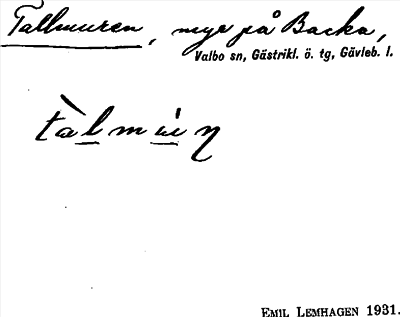 Tallmuren, myr på Backa,
Valbo sn, Gästrikl. ö. tg, Gävleb. l.
EMIL LEMHAGEN 1931.